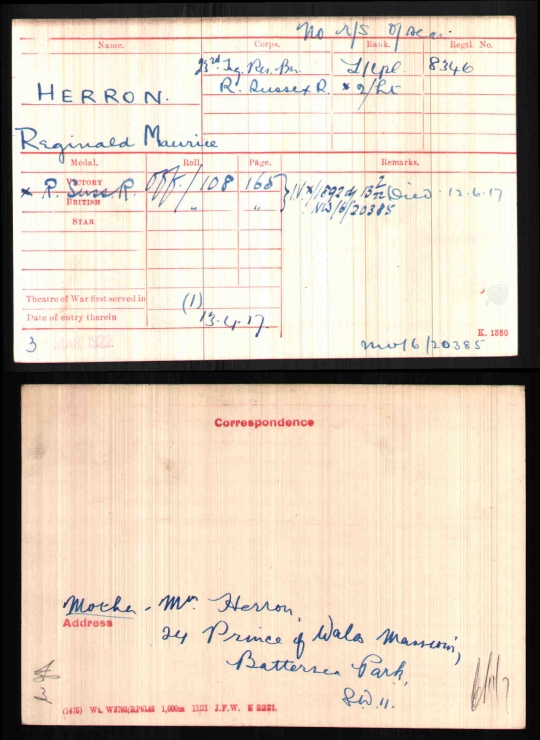 No R/S
Name. Corps. Rank. Regtl. No.
23rd Trg. Res. Bn. L/Cpl 8346
HERRON. R. Sussex R. * 2/Lt
Reginald Maurice
Medal. Roll. Page. Remarks.
* R. Suss. R. VICTORY Off/108 165 I.V.X/1892 d/ 13/2/22 Died 12.6.17
BRITISH " " NW/6/20385
STAR
Theatre of War first served in (1)
Date of entry therein 13.4.17
3 K. 1380
NW/6/20385
Correspondence
Mother - Mrs Herron,
Address
24 Prince of Wales Mansions,
Battersea Park,
S.W. 11.
6/11/7
(1475) Wt. W3795/RP6148 1,000m 12/21 J.F.W. E 2221.